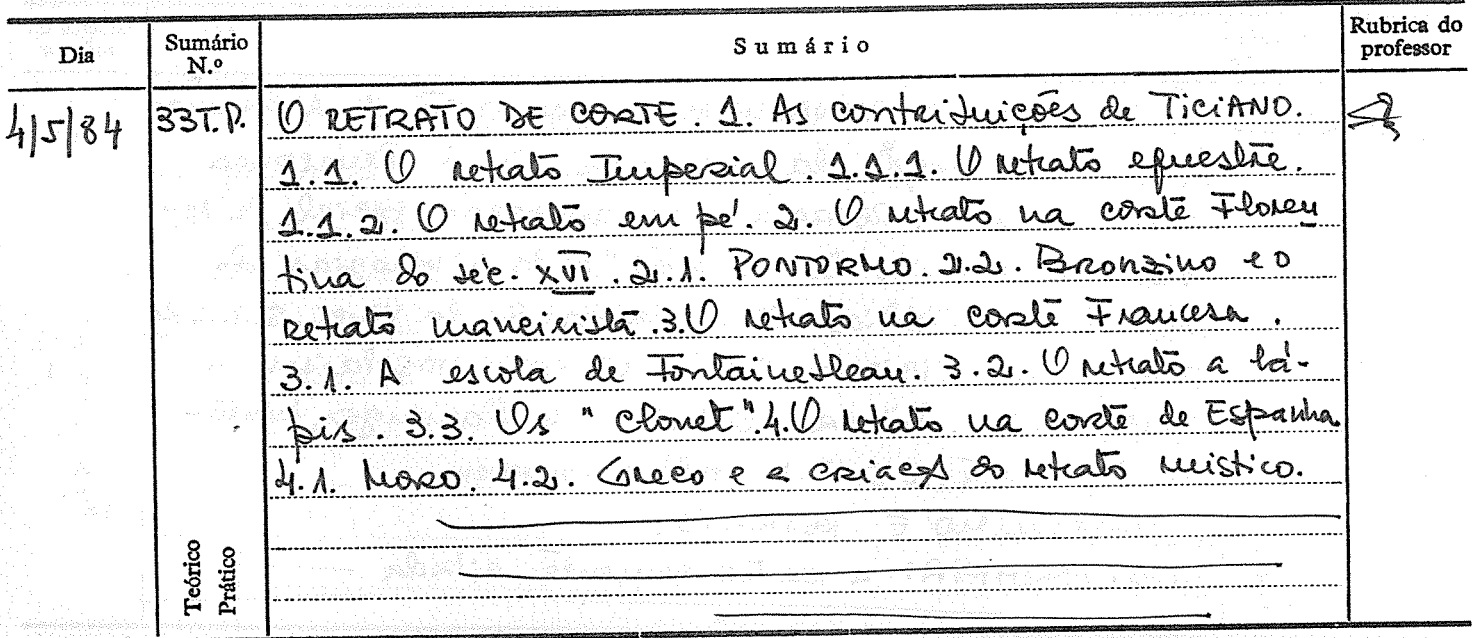 Dia
Sumário N.º
Sumário
Rubrica do professor
4/5/84 33T.P. O RETRATO DE CORTE. 1. As contribuições de TICIANO.
1.1. O retrato Imperial. 1.1.1. O retrato equestre.
1.1.2. O retrato em pé. 2. O retrato na corte Floren
tina do séc. XVI. 2.1. PONTORMO. 2.2. Bronzino e o
retrato maneirista. 3. O retrato na corte Francesa.
3.1. A escola de Fontainebleau. 3.2. O retrato a lá-
pis. 3.3. Os "Clouet". 4. O retrato na corte de Espanha
4.1. Moro. 4.2. Greco e a criação do retrato místico.
Teórico
Prático